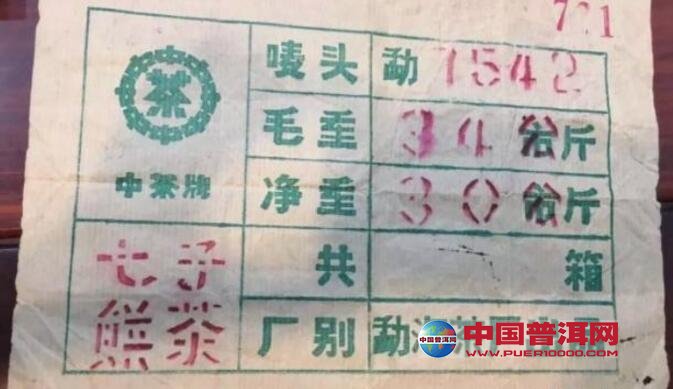 7
1
茶
中茶牌
唛头 勐7542
毛重 34公斤
净重 30公斤
七子
饼茶
共 箱
厂别 勐海茶
中国普洱网
WWW.PUER10000.COM